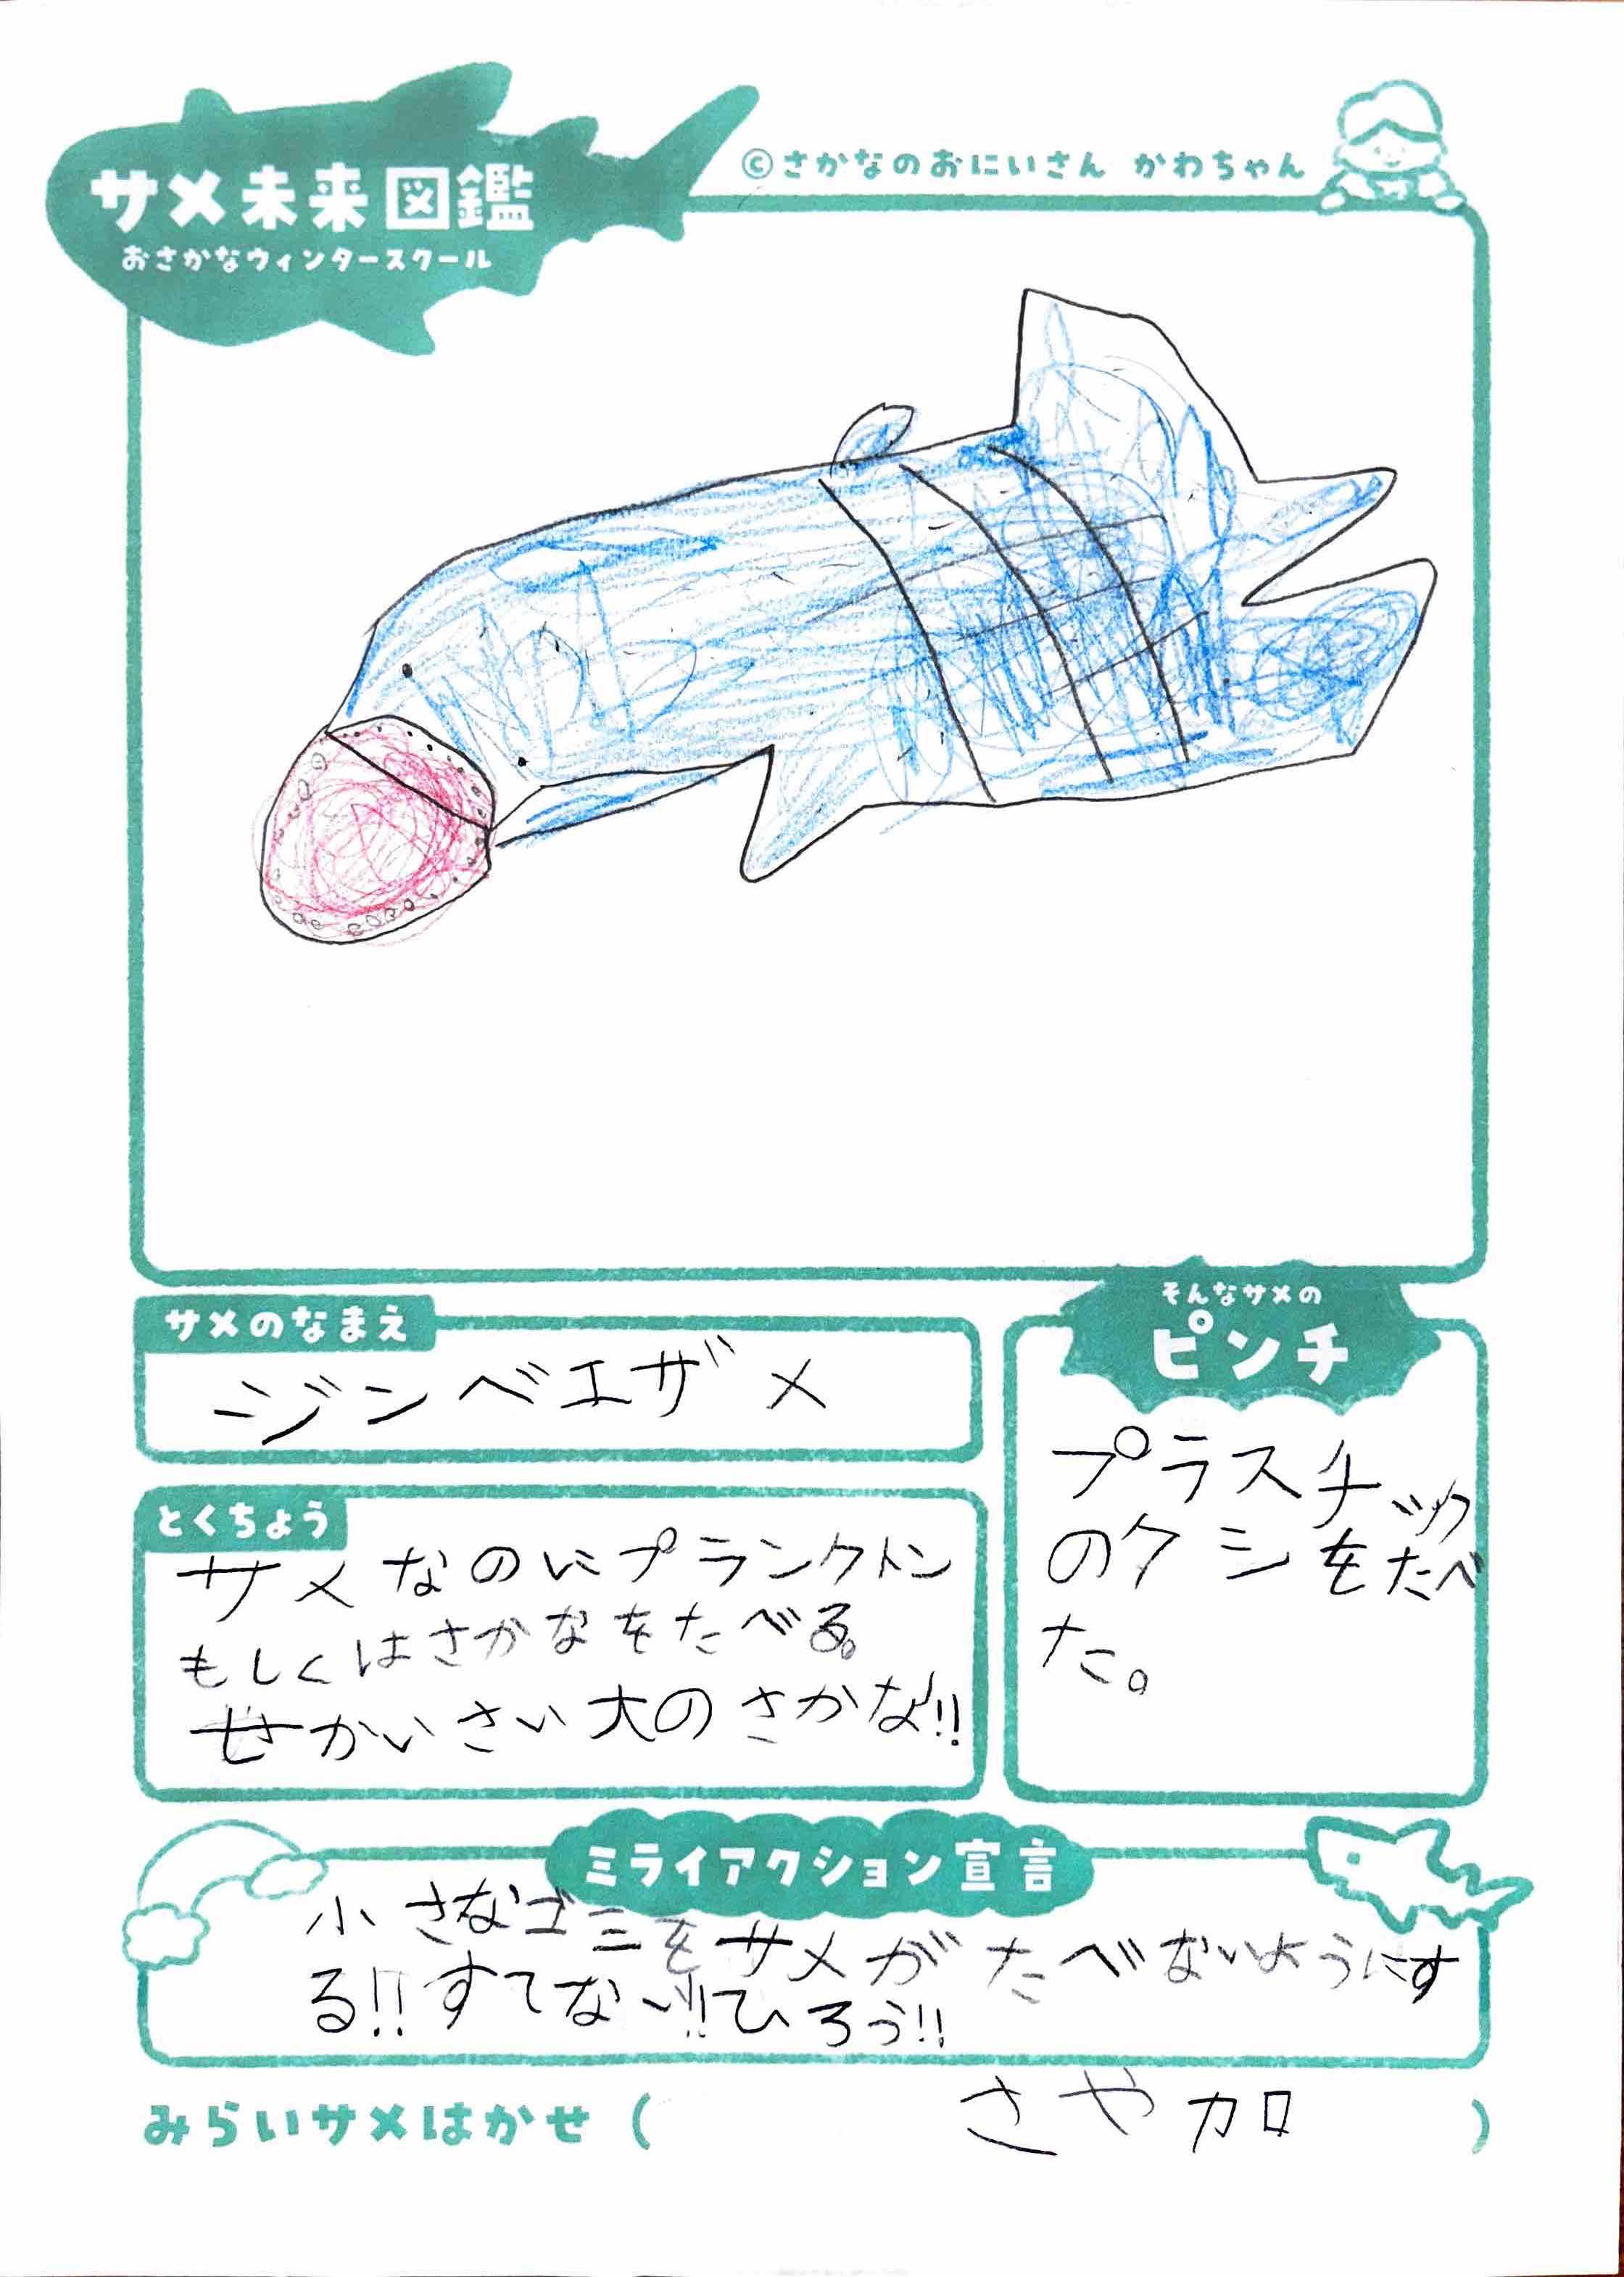 サメ未来図鑑
おさかなウィンタースクール
©さかなのおにいさん かわちゃん
サメのなまえ
ジンベエザメ
とくちょう
サメなのにプランクトン
もしくはさかなをたべる。
せかいさい大のさかな!!
そんなサメの
ピンチ
プラスチック
のクシをたべ
た。
ミライアクション宣言
小さなゴミをサメがたべないようにす
る!!すてない!!ひろう!!
みらいサメはかせ( さや加 )